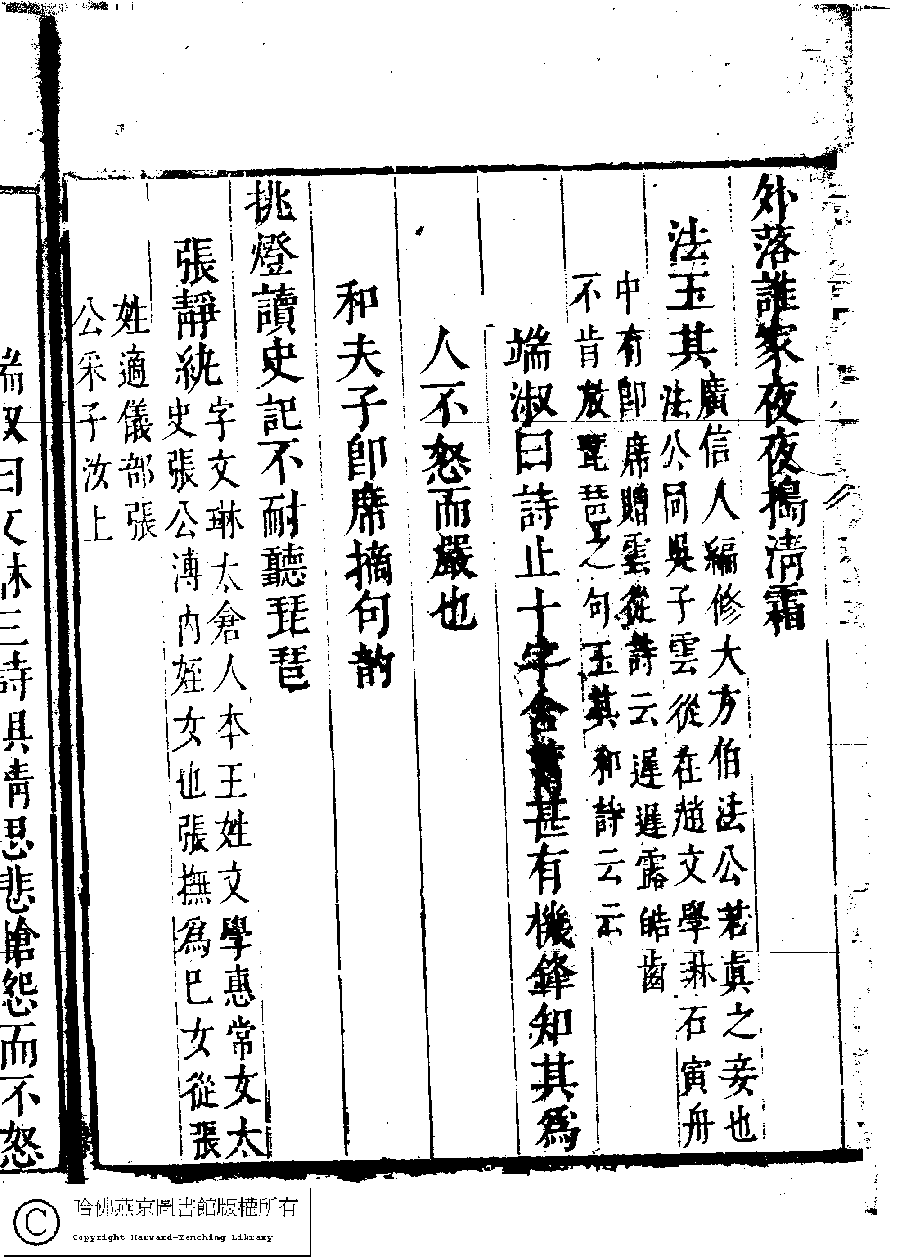 外落誰家夜夜搗清霜
法玉其
廣信人編修大方伯法公若真之妾也
法公同吳子雲從在趙文學琳石寅舟
中有即席贈雲從詩云遲遲露皓齒
不肯放琵琶之句玉其和詩云云
端淑曰詩止十字含蓄甚有機鋒知其為
人不怒而嚴也
和夫子即席摘句韵
挑燈讀史記不耐聽琵琶
張靜紈
字文琳太倉人本王姓文學惠常女太
史張公溥內姪女也張撫為己女從張
姓適儀部張
公采子汝上
端淑曰文琳三詩具清思悲愴怨而不怒
哈佛燕京圖書館版權所有
Copyright Harvard-Yenching Library